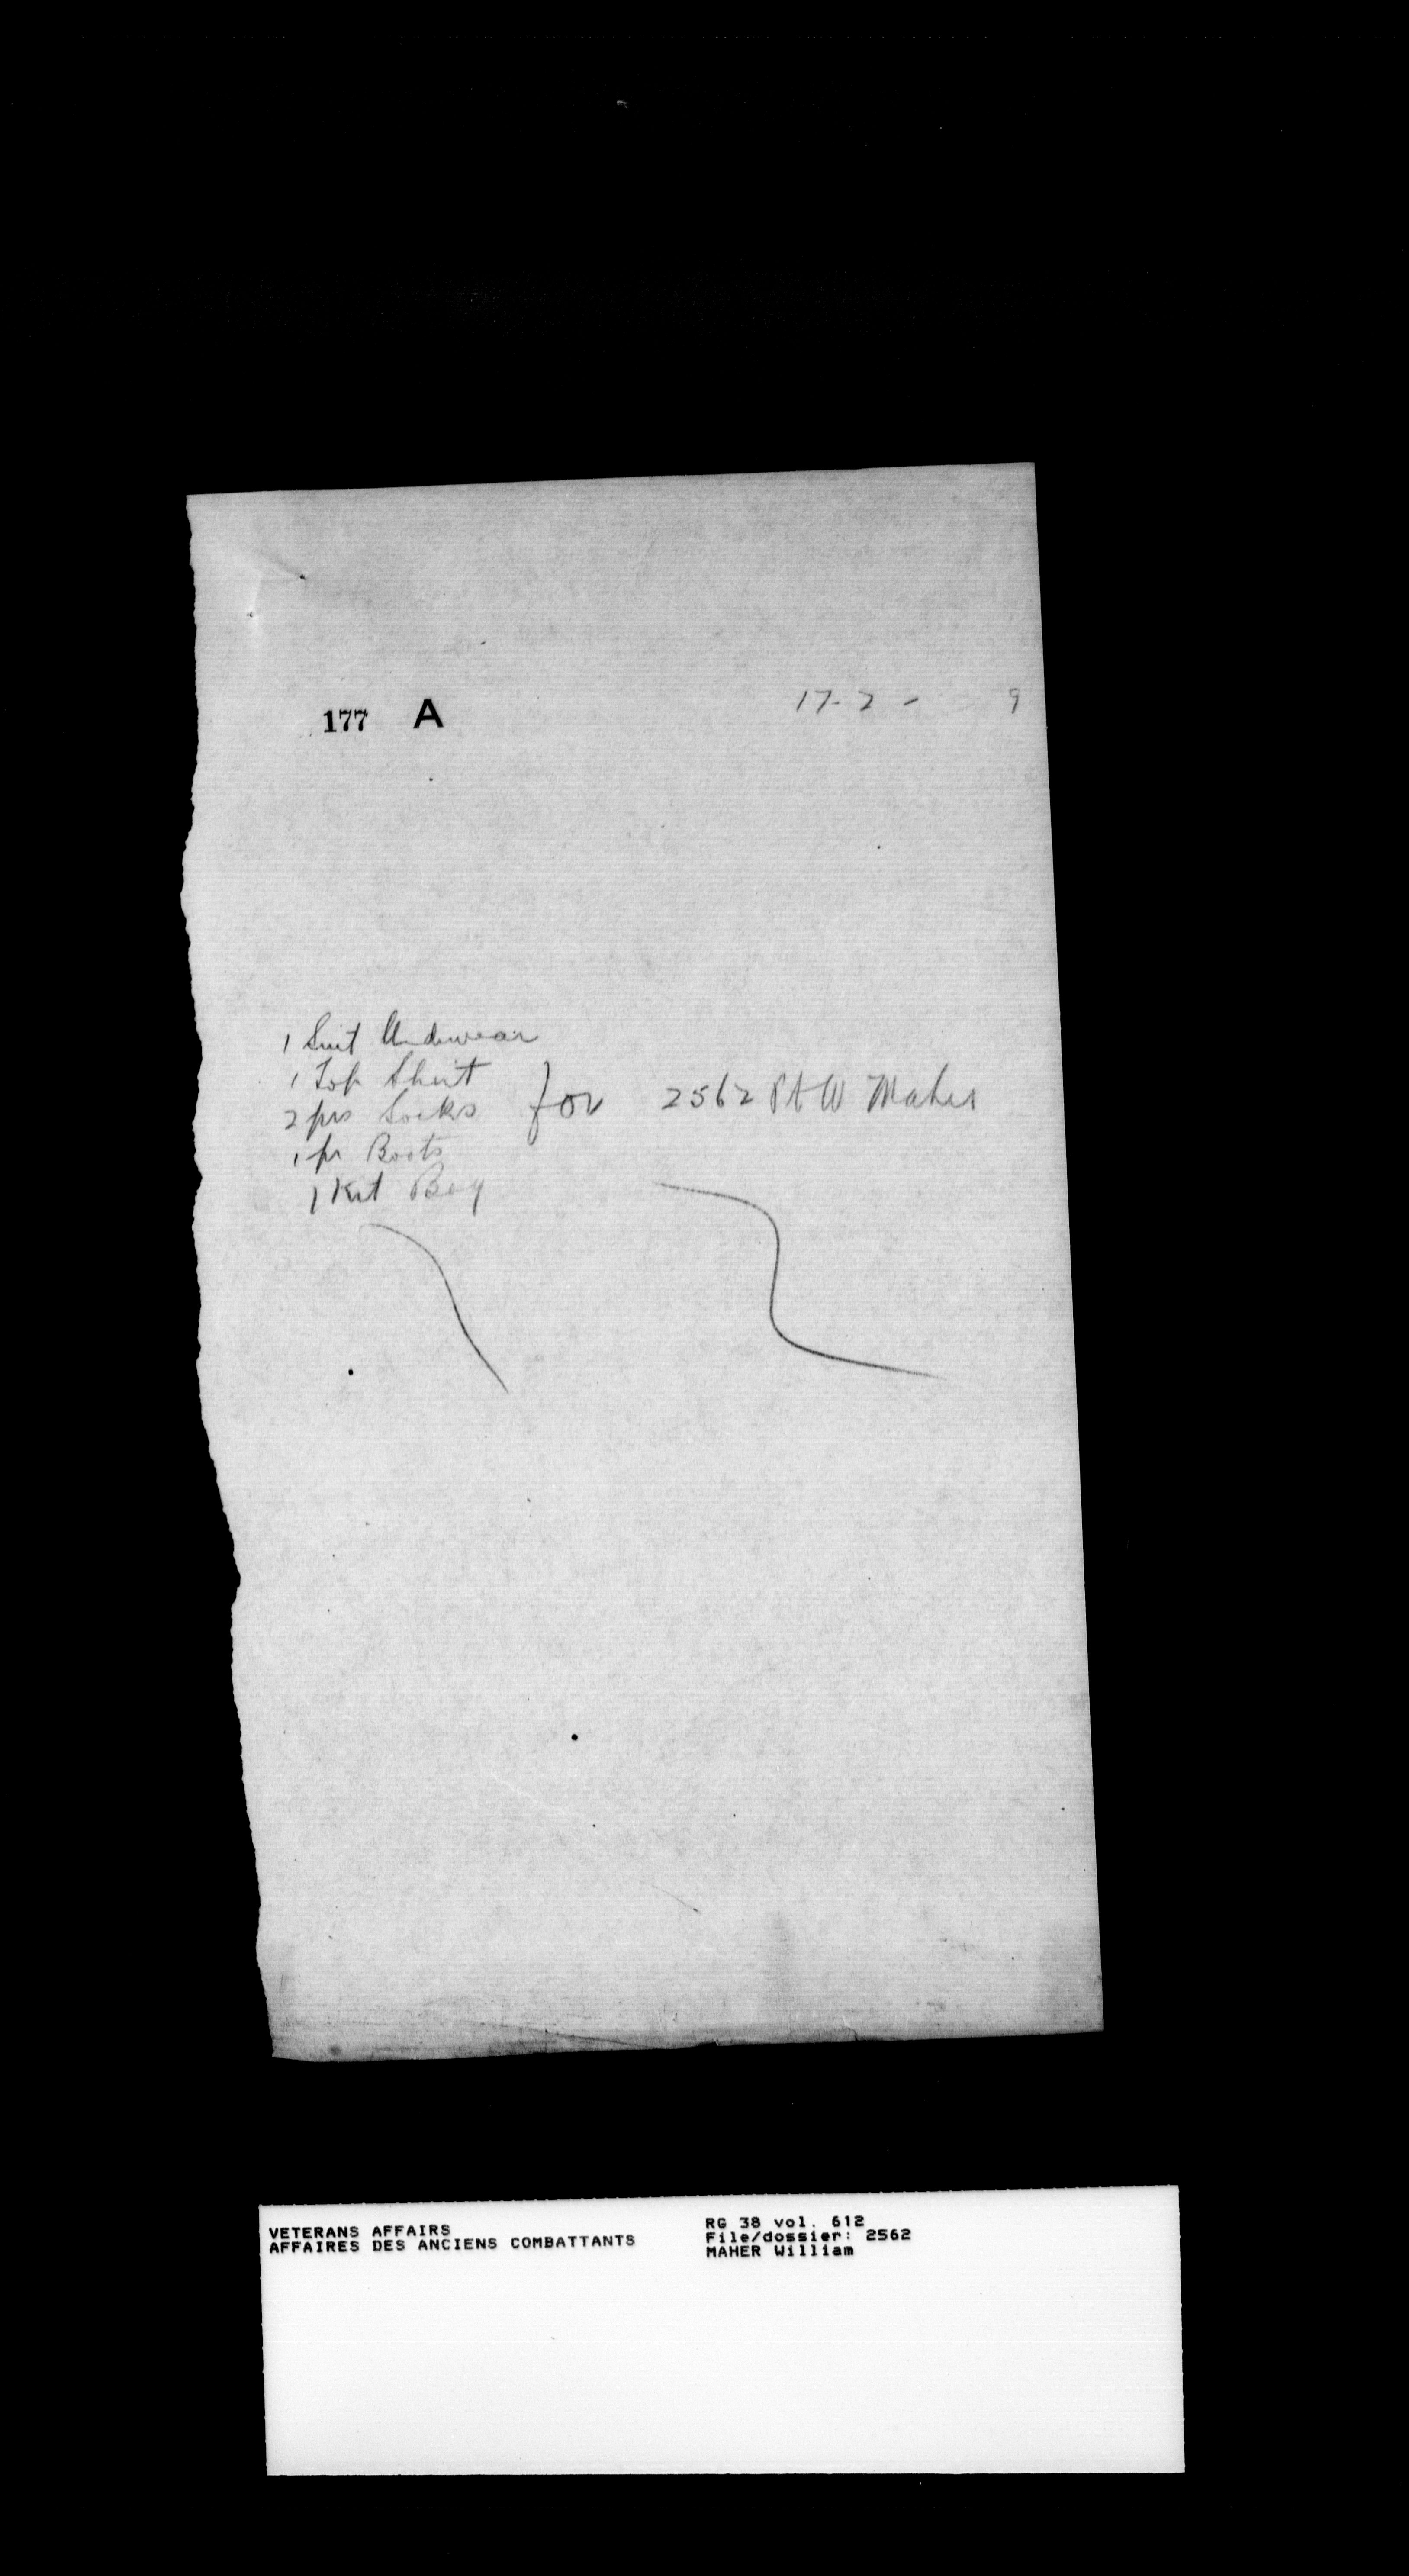 177 A 17-2- 9
1 Suit Underwear
1 Top Shirt
2 prs Socks for 2562 Pt W Maher
1 pr Boots
1 Kit Bag
VETERANS AFFAIRS
AFFAIRES DES ANCIENS COMBATTANTS
RG 38 vol. 612
File/dossier: 2562
MAHER William